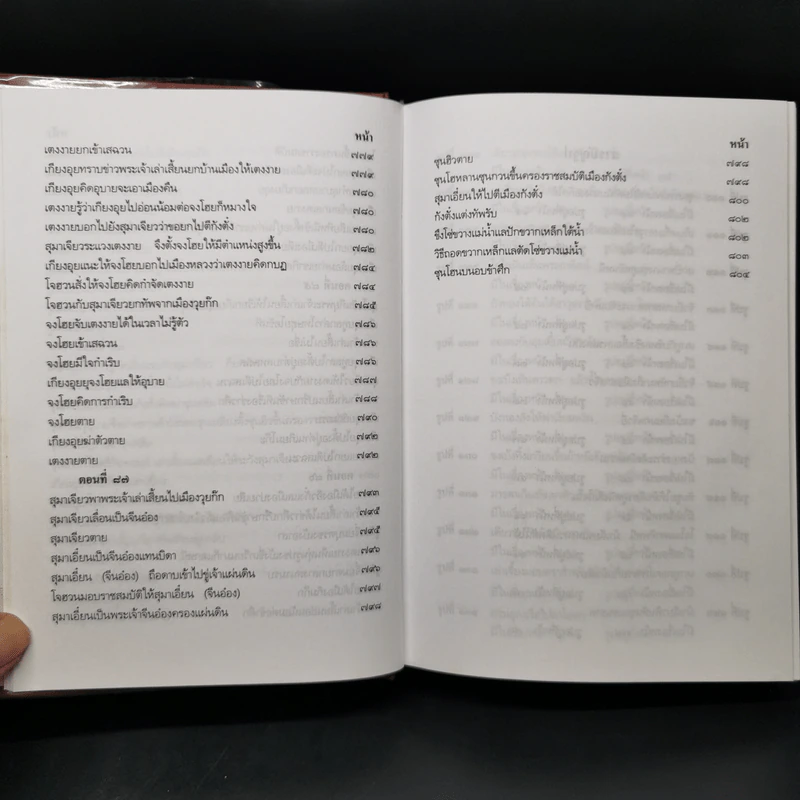 หน้า
เตงงายยกเข้าเสฉวน ๗๗๙
เกียงอุยทราบข่าวพระเจ้าเล่าเสี้ยนยกบ้านเมืองให้เตงงาย ๗๗๙
เกียงอุยคิดอุบายจะเอาเมืองคืน ๗๘๐
เตงงายรู้ว่าเกียงอุยไปอ่อนน้อมต่อจงโฮยก็หมางใจ ๗๘๐
เตงงายบอกไปยังสุมาเจียวว่าขอยกไปตีกังตั๋ง ๗๘๐
สุมาเจียวระแวงเตงงาย จึงตั้งจงโฮยให้มีตำแหน่งสูงขึ้น ๗๘๒
เกียงอุยแนะให้จงโฮยบอกไปเมืองหลวงว่าเตงงายคิดกบฏ ๗๘๔
โจฮวนสั่งให้จงโฮยคิดกำจัดเตงงาย ๗๘๔
โจฮวนกับสุมาเจียวยกทัพจากเมืองวุยก๊ก ๗๘๕
จงโฮยจับเตงงายได้ในเวลาไม่รู้ตัว ๗๘๖
จงโฮยเข้าเสฉวน ๗๘๖
จงโฮยมีใจกำเริบ ๗๘๖
เกียงอุยยุจงโฮยแลให้อุบาย ๗๘๗
จงโฮยคิดการกำเริบ ๗๘๘
จงโฮยตาย ๗๙๐
เกียงอุยฆ่าตัวตาย ๗๙๒
เตงงายตาย ๗๙๒
ตอนที่ ๘๗
สุมาเจียวพาพระเจ้าเล่าเสี้ยนไปเมืองวุยก๊ก ๗๙๓
สุมาเจียวเลื่อนเป็นจีนอ๋อง ๗๙๕
สุมาเจียวตาย ๗๙๕
สุมาเอี๋ยนเป็นจีนอ๋องแทนบิดา ๗๙๖
สุมาเอี๋ยน (จีนอ๋อง) ถือดาบเข้าไปขู่เจ้าแผ่นดิน ๗๙๖
โจฮวนมอบราชสมบัติให้สุมาเอี๋ยน (จีนอ๋อง) ๗๙๗
สุมาเอี๋ยนเป็นพระเจ้าจีนอ๋องครองแผ่นดิน ๗๙๘
หน้า
ซุนฮิวตาย ๗๙๘
ซุนโฮหลานซุนกวนขึ้นครองราชสมบัติเมืองกังตั๋ง ๗๙๘
สุมาเอี๋ยนให้ไปตีเมืองกังตั๋ง ๘๐๐
กังตั๋งแต่งทัพรับ ๘๐๒
ขึงโซ่ขวางแม่น้ำแลปักขวากเหล็กใต้น้ำ ๘๐๒
วิธีถอดขวากเหล็กแลตัดโซ่ขวางแม่น้ำ ๘๐๓
ซุนโฮนบนอบข้าศึก ๘๐๔